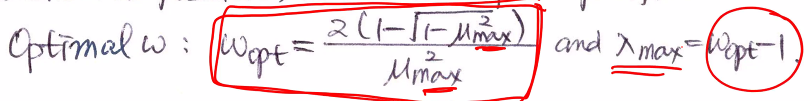 Optimal ω : ω_opt = 2(1-√(1-μ²_max)) / μ²_max and λ_max = ω_opt - 1.